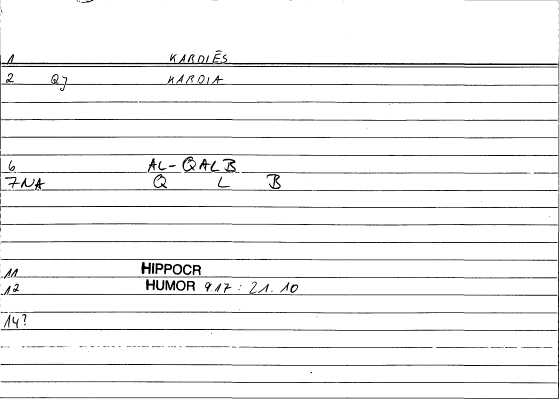 1 KARDIĒS
2 QJ KARDIA
6 AL-QALB
7NA Q L B
11 HIPPOCR
12 HUMOR 9.17 : 21.10
14?